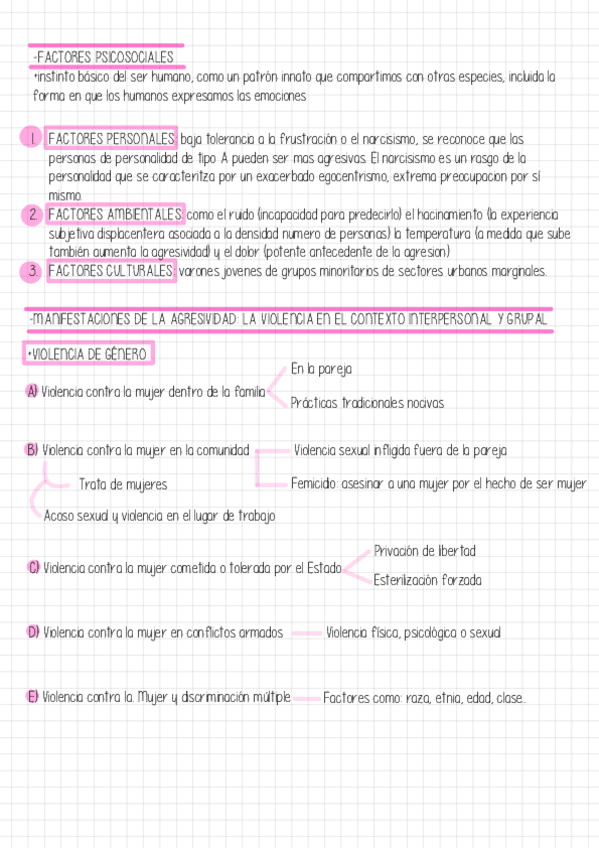 -FACTORES PSICOSOCIALES
•instinto básico del ser humano, como un patrón innato que compartimos con otras especies, incluida la
forma en que los humanos expresamos las emociones
1. FACTORES PERSONALES: baja tolerancia a la frustración o el narcisismo, se reconoce que las
personas de personalidad de tipo A pueden ser mas agresivas. El narcisismo es un rasgo de la
personalidad que se caracteritza por un exacerbado egocentrismo, extrema preocupacion por sí
mismo.
2. FACTORES AMBIENTALES: como el ruido (incapacidad para predecirlo) el hacinamiento (la experiencia
subjetiva displacentera asociada a la densidad numero de personas) la temperatura (a medida que sube
también aumenta la agresividad) y el dolor (potente antecedente de la agresion)
3. FACTORES CULTURALES: varones jovenes de grupos minoritarios de sectores urbanos marginales.
-MANIFESTACIONES DE LA AGRESIVIDAD: LA VIOLENCIA EN EL CONTEXTO INTERPERSONAL Y GRUPAL
•VIOLENCIA DE GÉNERO
En la pareja
A) Violencia contra la mujer dentro de la familia
Prácticas tradicionales nocivas
B) Violencia contra la mujer en la comunidad
Violencia sexual infligida fuera de la pareja
Trata de mujeres
Femicidio: asesinar a una mujer por el hecho de ser mujer
Acoso sexual y violencia en el lugar de trabajo
Privación de libertad
C) Violencia contra la mujer cometida o tolerada por el Estado
Esterilización forzada
D) Violencia contra la mujer en conflictos armados
Violencia física, psicológica o sexual
E) Violencia contra la. Mujer y discriminación múltiple
Factores como: raza, etnia, edad, clase...